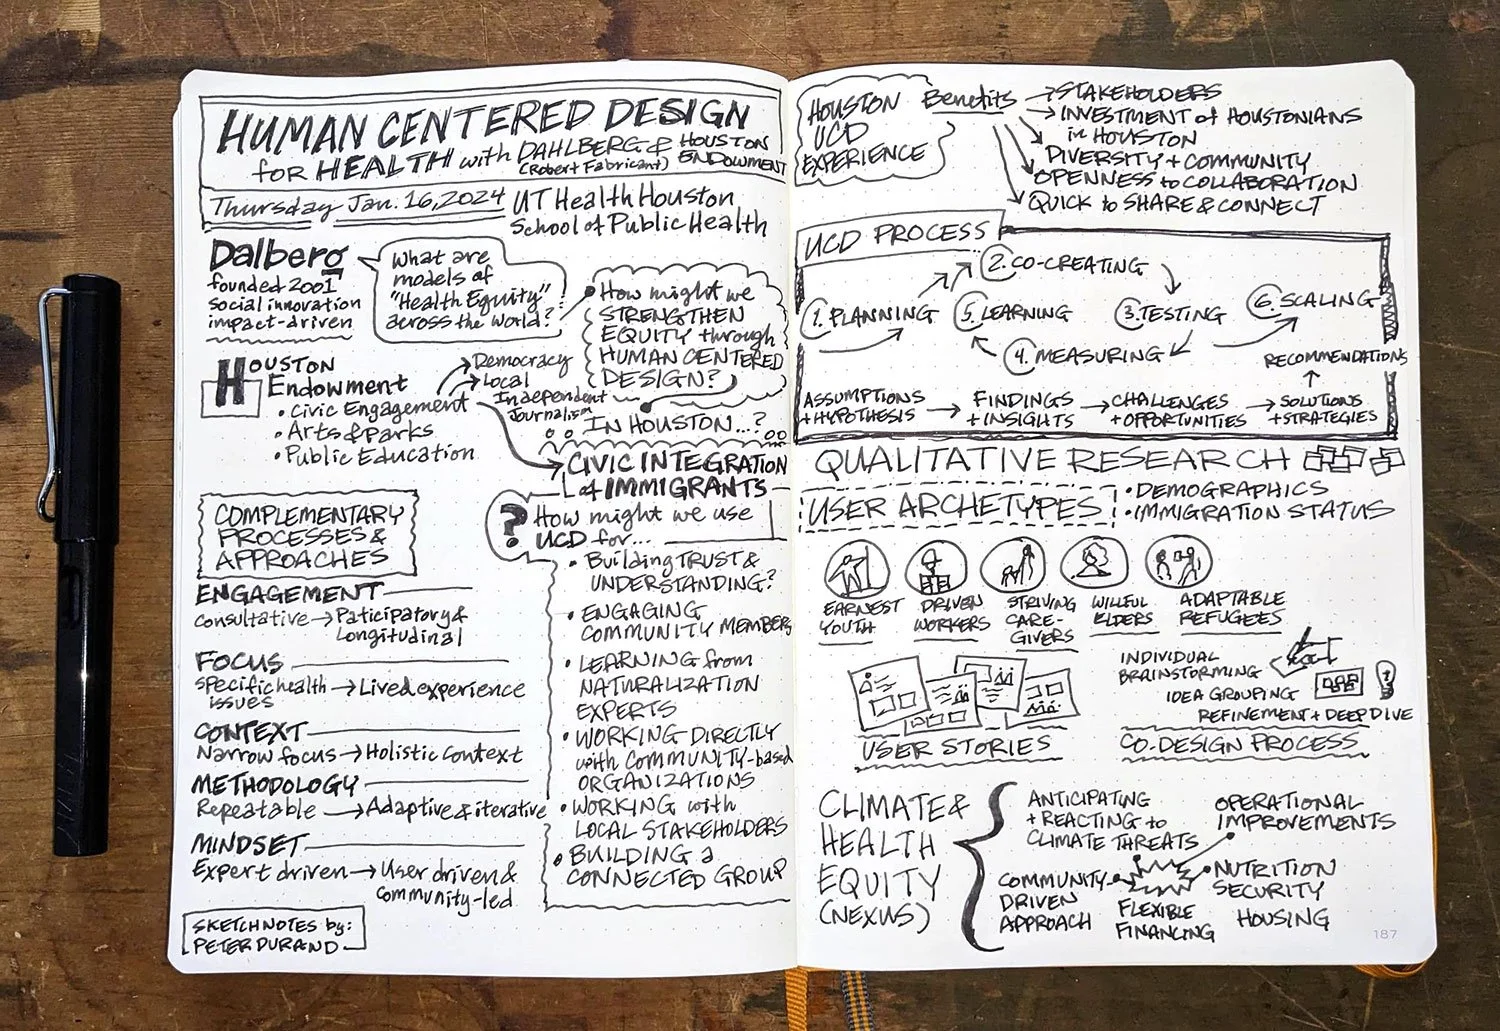 HUMAN CENTERED DESIGN
for HEALTH with DAHLBERG & HOUSTON
(Robert Fabricant) ENDOWMENT
Thursday Jan. 16, 2024
UT Health Houston
School of Public Health
Dalberg
founded 2001
social innovation
impact-driven
What are
models of
"Health Equity"
across the world?
How might we
STRENGTHEN
EQUITY through
HUMAN CENTERED
DESIGN?
IN HOUSTON...?
HOUSTON
Endowment
• Civic Engagement
• Arts & Parks
• Public Education
Democracy
Local
Independent
Journalism
CIVIC INTEGRATION
of IMMIGRANTS
? How might we use
UCD for...
• Building TRUST &
UNDERSTANDING?
• ENGAGING
COMMUNITY MEMBERS
• LEARNING from
NATURALIZATION
EXPERTS
• WORKING DIRECTLY
with COMMUNITY-based
ORGANIZATIONS
• WORKING with
LOCAL STAKEHOLDERS
• BUILDING a
CONNECTED GROUP
COMPLEMENTARY
PROCESSES &
APPROACHES
ENGAGEMENT
Consultative → Paticipatory &
Longitudinal
FOCUS
Specific health → Lived experience
issues
CONTEXT
Narrow focus → Holistic context
METHODOLOGY
Repeatable → Adaptive & iterative
MINDSET
Expert driven → User driven &
Community-led
SKETCHNOTES by:
PETER DURAND
HOUSTON
UCD
EXPERIENCE
Benefits
→ STAKEHOLDERS
→ INVESTMENT of HOUSTONIANS
in HOUSTON
DIVERSITY + COMMUNITY
OPENNESS to COLLABORATION
QUICK to SHARE & CONNECT
UCD PROCESS
1. PLANNING
2. CO-CREATING
3. TESTING
4. MEASURING
5. LEARNING
6. SCALING
ASSUMPTIONS
+ HYPOTHESIS
→ FINDINGS
+ INSIGHTS
→ CHALLENGES
+ OPPORTUNITIES
→ SOLUTIONS
+ STRATEGIES
RECOMMENDATIONS
QUALITATIVE RESEARCH
USER ARCHETYPES
• DEMOGRAPHICS
• IMMIGRATION STATUS
EARNEST
YOUTH
DRIVEN
WORKERS
STRIVING
CARE-
GIVERS
WILLFUL
ELDERS
ADAPTABLE
REFUGEES
USER STORIES
INDIVIDUAL
BRAINSTORMING
IDEA GROUPING
REFINEMENT + DEEP DIVE
CO-DESIGN PROCESS
CLIMATE &
HEALTH
EQUITY
(NEXUS)
ANTICIPATING
+ REACTING to
CLIMATE THREATS
OPERATIONAL
IMPROVEMENTS
COMMUNITY-
DRIVEN
APPROACH
FLEXIBLE
FINANCING
NUTRITION
SECURITY
HOUSING
187